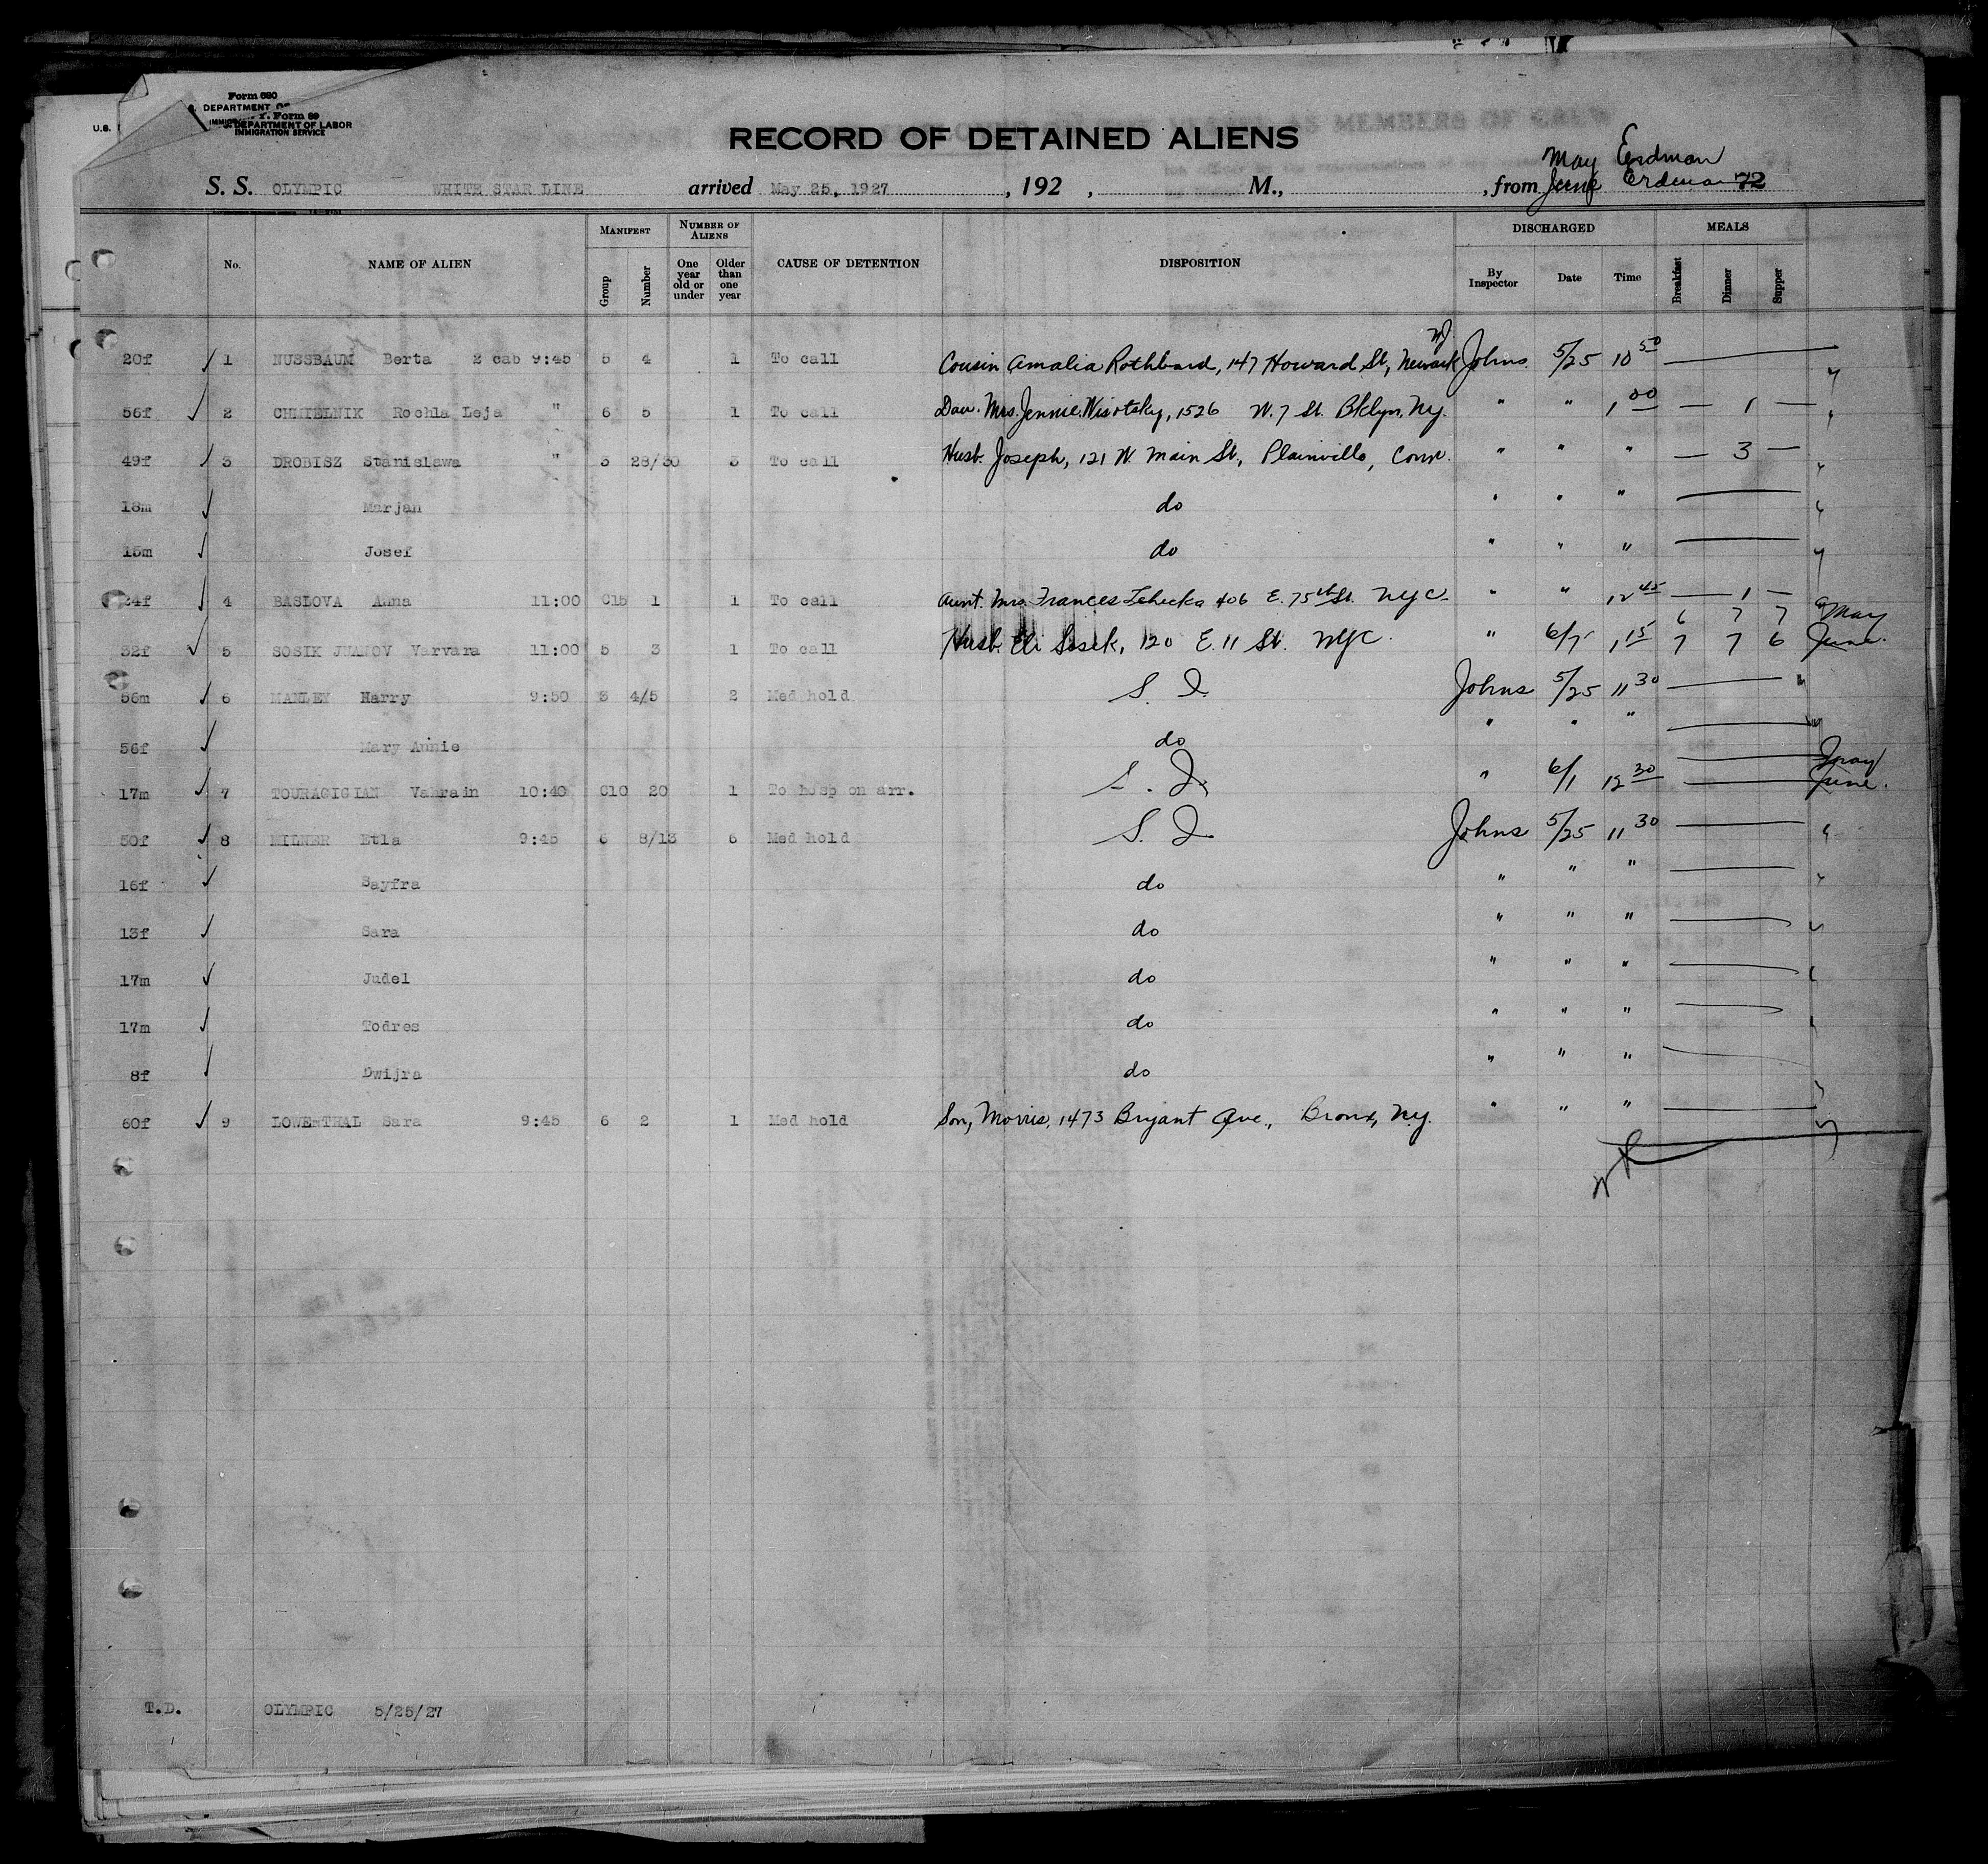 Form 680
DEPARTMENT OF
N.Y. Form 89
U.S. DEPARTMENT OF LABOR
IMMIGRATION SERVICE
RECORD OF DETAINED ALIENS
May Erdman
S. S. OLYMPIC WHITE STAR LINE arrived May 25, 1927, 192 , M., , from June Erdman 72
No. NAME OF ALIEN MANIFEST Group Number NUMBER OF ALIENS One year old or under Older than one year CAUSE OF DETENTION DISPOSITION DISCHARGED By Inspector Date Time MEALS Breakfast Dinner Supper
20f 1 NUSSBAUM Berta 2 cab 9:45 5 4 1 To call Cousin Amalia Rothbard, 147 Howard St, Newark NJ Johns 5/25 10 50
56f 2 CHMIELNIK Rochla Leja " 6 5 1 To call Dau. Mrs. Jennie Wisotsky, 1526 W. 7 St. Bklyn, Ny. " " 1 00 — 1 —
49f 3 DROBISZ Stanislawa " 3 28/30 3 To call Husb. Joseph, 121 W. Main St., Plainville, Conn. " " " — 3 —
18m Marjan do " " "
15m Josef do " " "
24f 4 BASLOVA Anna 11:00 C15 1 1 To call Aunt. Mrs. Frances 406 E. 75th St. NYC. " " 12 45 — 1 —
6 7 7 May
32f 5 SOSIK JUANOV Varvara 11:00 5 3 1 To call Husb. Eli Sosik, 120 E. 11 St. NYC. " 6/7 1 15 7 7 6 June.
56m 6 MANLEY Harry 9:50 3 4/5 2 Med hold S. I. Johns 5/25 11 30
56f Mary Annie do " " "
May
17m 7 TOURAGIGIAN Vahrain 10:40 C10 20 1 To hosp on arr. S. I. " 6/1 12 30 June.
50f 8 MILNER Etla 9:45 6 8/13 6 Med hold S. I. Johns 5/25 11 30
16f Sayfra do " " "
13f Sara do " " "
17m Judel do " " "
17m Todres do " " "
8f Dwijra do " " "
60f 9 LOWENTHAL Sara 9:45 6 2 1 Med hold Son, Morris, 1473 Bryant Ave., Bronx, Ny. " " "
T.D. OLYMPIC 5/25/27